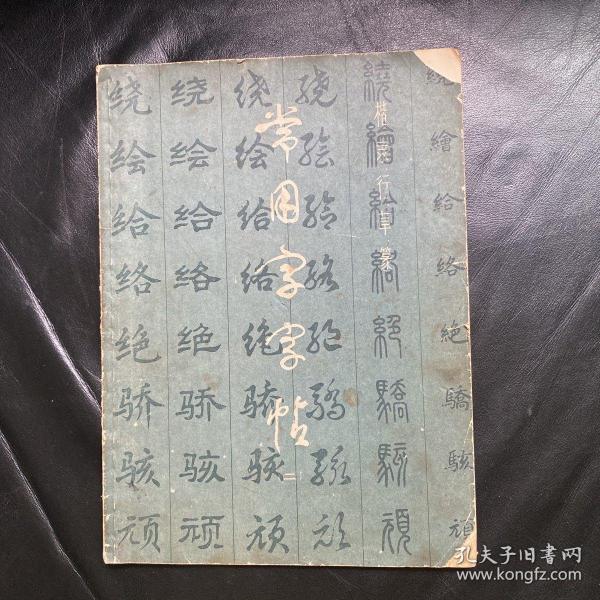 常用字字帖
二
楷隶行草篆
绕 绘 给 络 绝 骄 骇 顽
绕 绘 给 络 绝 骄 骇 顽
绕 绘 给 络 绝 骄 骇 顽
绕 绘 给 络 绝 骄 骇 顽
繞 繪 給 絡 絕 驕 駭 頑
繞 繪 給 絡 絶 驕 駭 頑
孔夫子旧书网
www.kongfz.com